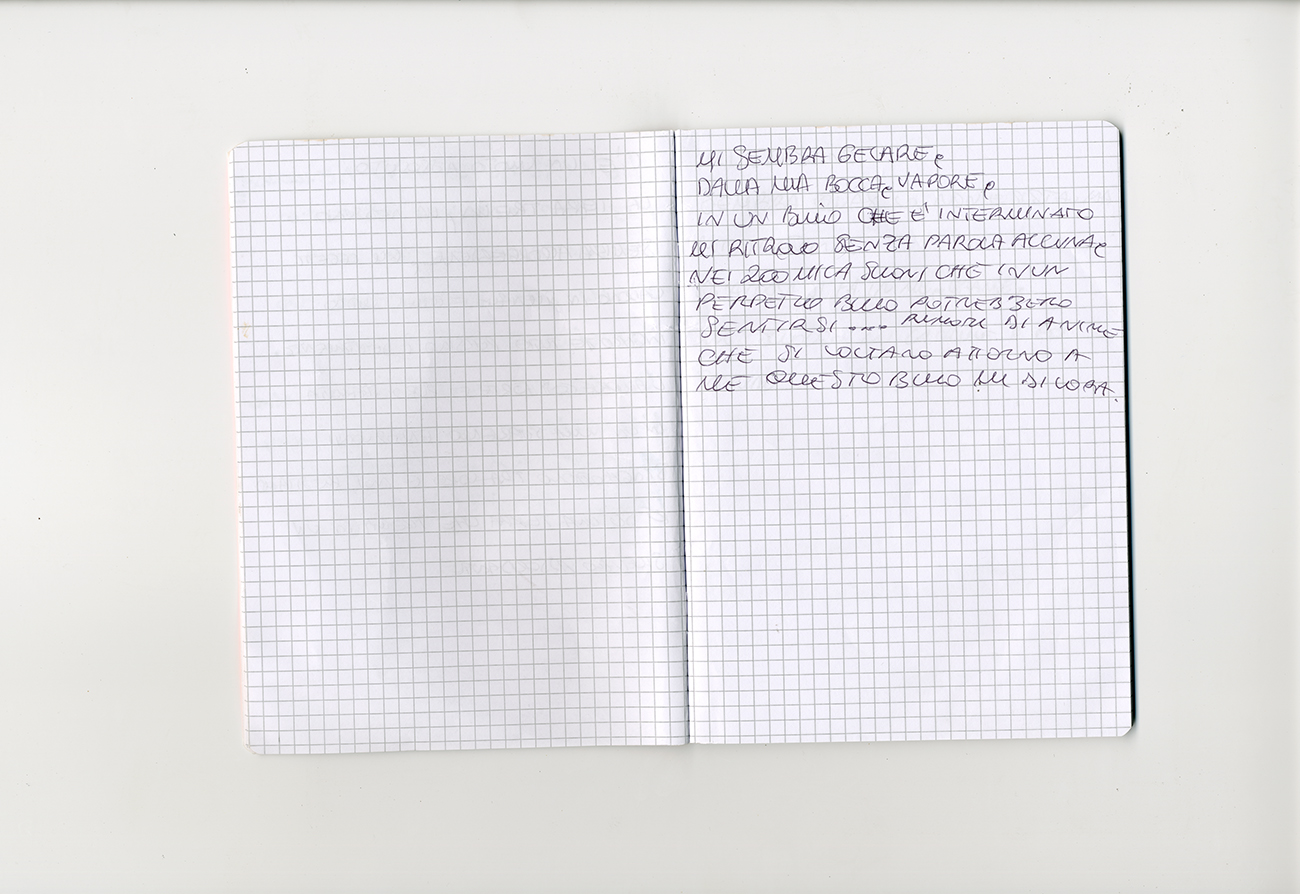 MI SEMBRA GELARE,
DALLA MIA BOCCA, VAPORE,
IN UN BUIO CHE E' INTERMINATO
MI RITROVO SENZA PAROLA ALCUNA,
NEI 200 MICA SUONI CHE IN UN
PERPETUO BUIO POTREBBERO
SENTIRSI .... RUMORI DI ANIME
CHE SI VOLTANO ATTORNO A
ME QUESTO BUIO MI DIVORA.